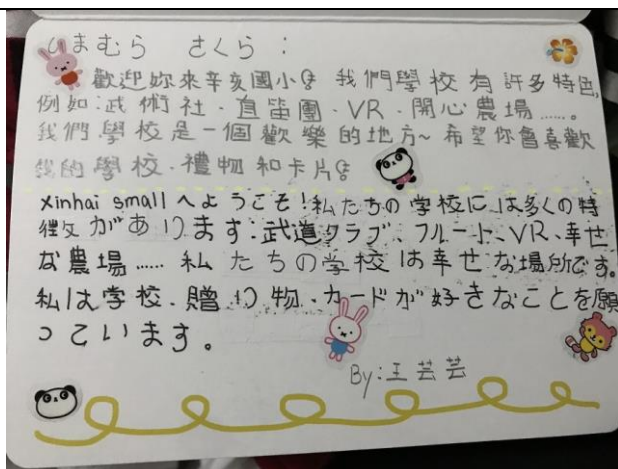 しまむら さくら:
歡迎妳來辛亥國小! 我們學校有許多特色,
例如:武術社、直笛團、VR、開心農場......。
我們學校是一個歡樂的地方~希望你會喜歡
我的學校、禮物和卡片!
Xinhai smallへようこそ!私たちの学校には多くの特
徴があります:武道クラブ、フルート、VR、幸せ
な農場......私たちの学校は幸せな場所です。
私は学校、贈り物、カードが好きなことを願
っています。
By:王芸芸